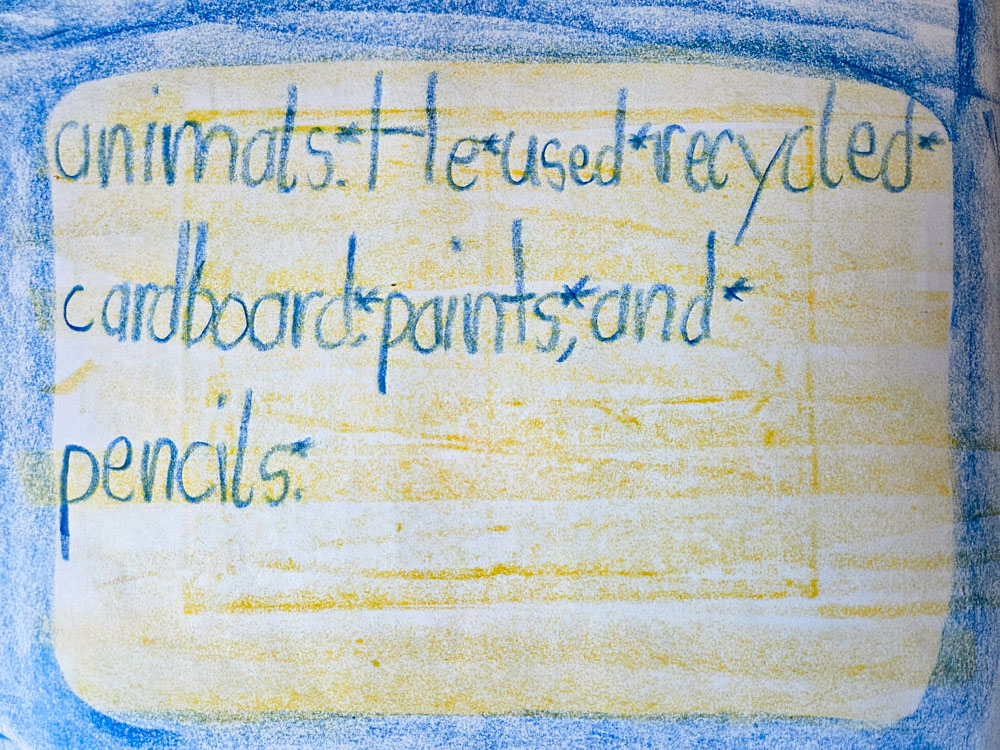 animals.*He*used*recycled*
cardboard.*paints,*and*
pencils.*